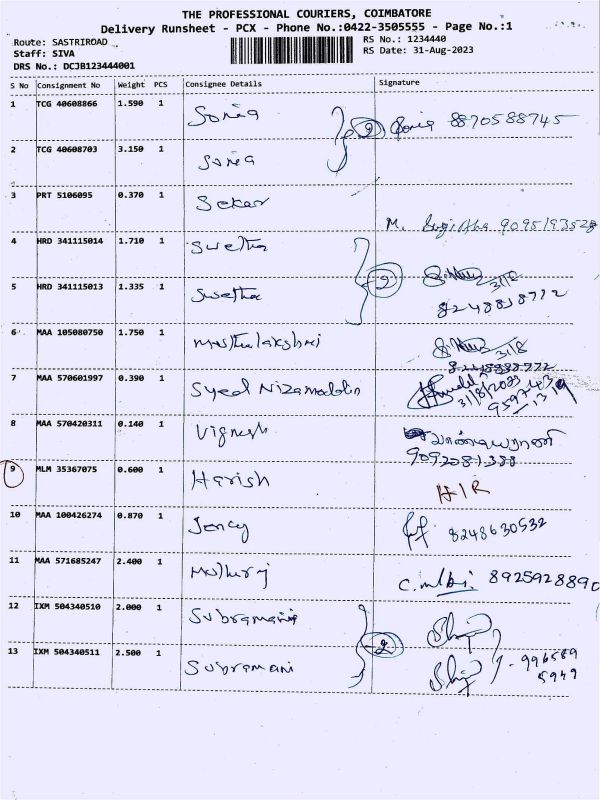 THE PROFESSIONAL COURIERS, COIMBATORE
Delivery Runsheet - PCX - Phone No.:0422-3505555 - Page No.:1
Route: SASTRIROAD RS No.: 1234440
Staff: SIVA RS Date: 31-Aug-2023
DRS No.: DCJB123444001
S No Consignment No Weight PCS Consignee Details Signature
1 TCG 40608866 1.590 1 Sonia 2 Sonia 8870588745
2 TCG 40608703 3.150 1 Sonia
3 PRT 5106095 0.370 1 Sekar
M. 9095193528
4 HRD 341115014 1.710 1 Swetha 2 31/8
5 HRD 341115013 1.335 1 Swetha 8248838772
6 MAA 105080750 1.750 1 Muthulakshmi 31/8
7 MAA 570601997 0.390 1 Syed Nizamuddin 31/8/2023
8 MAA 570420311 0.140 1 Vignesh
9092081388
9 MLM 35367075 0.600 1 Harish H/R
10 MAA 100426274 0.870 1 Jency 8248630532
11 MAA 571685247 2.400 1 Muthuraj 8925928890
12 IXM 504340510 2.000 1 Subramani 2
13 IXM 504340511 2.500 1 Subramani 996589
5949